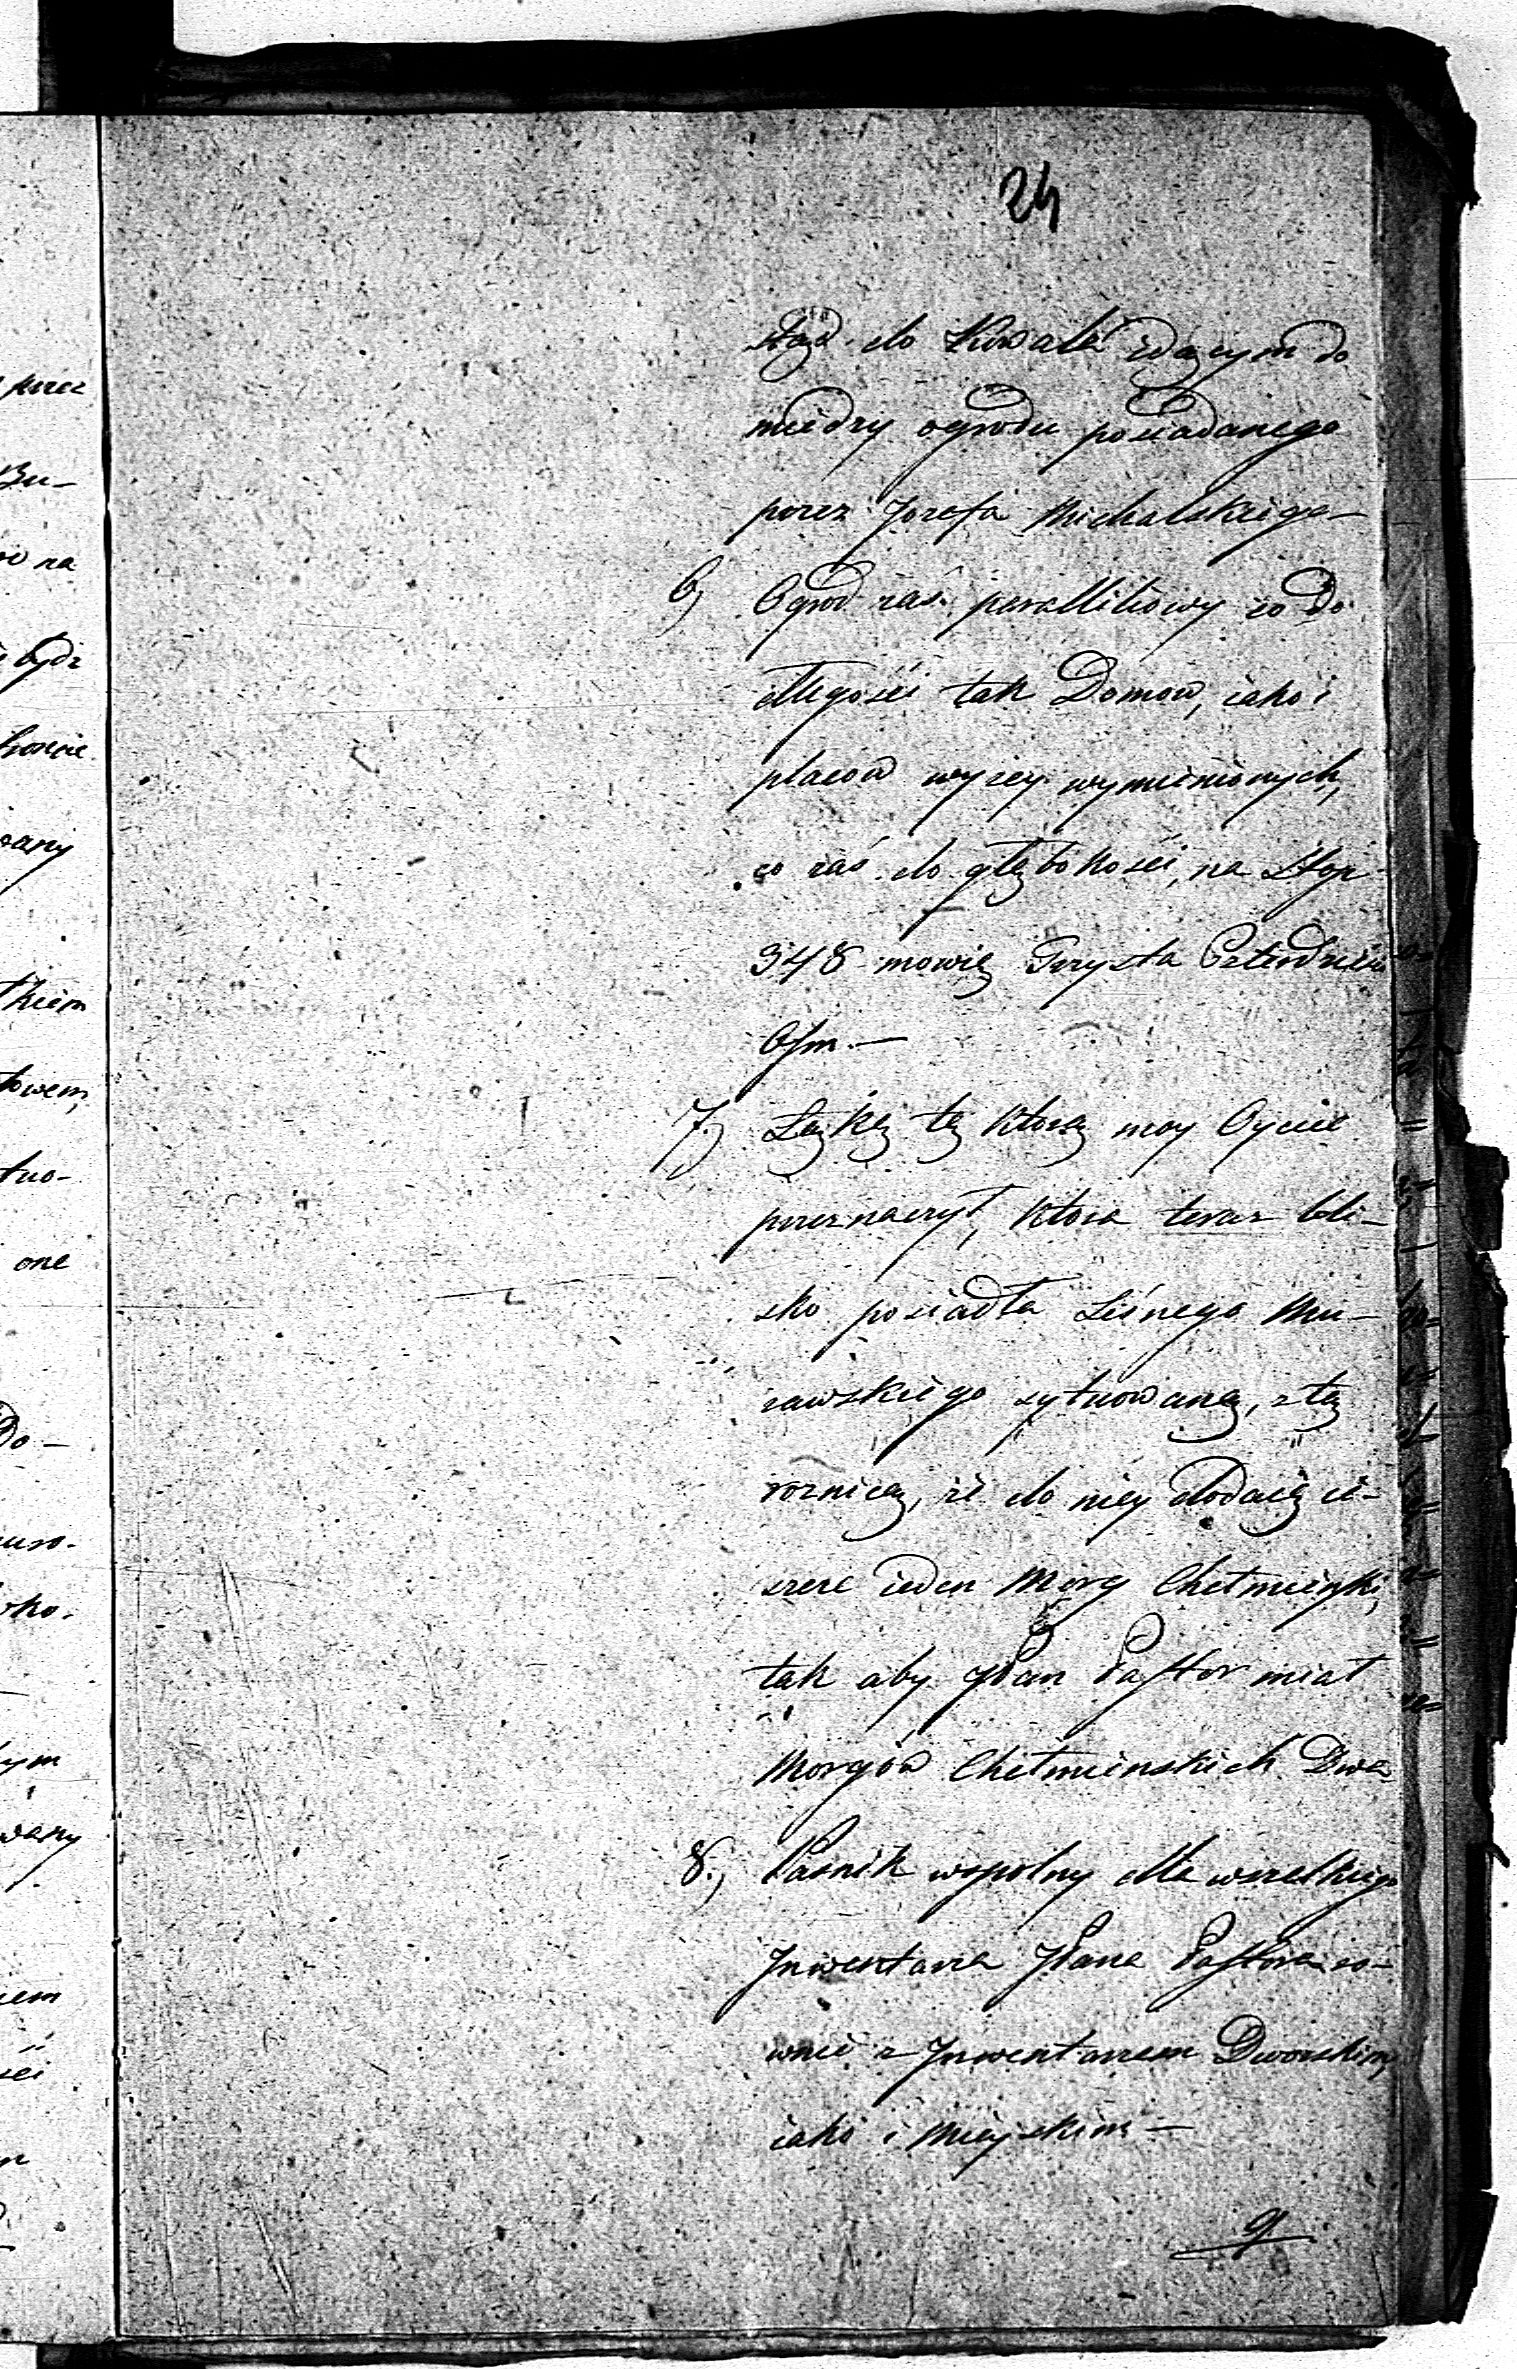 24
ztąd do Kowala idącym do
miedzy ogrodu posiadanego
przez Jozefa Michalskiego —
6) Ogrod zaś parallilowy co do
dlugości tak Domow, iako i
placow wyżey wymienionych,
co zaś do głębokości, na Stop
348 mowię Trzysta Czterdzieści
Ośm. —
7) Łąkę tę ktorą moy Oyciec
przeznaczył, ktora teraz bli-
sko posiadła Leśnego Mu-
rawskiego sytuowaną, z tą
roznicą, że do niey dodaię ie-
szcze ieden Morg Chełmiński,
tak aby JPan Pastor miał
Morgow Chełminskich Dwa
8.) Pasnik wspolny dla wszelkiego
Inwentarza JPana Pastora ro-
wnie z Inwentarzem Dworskim,
iako i Mieyskim —
9
przez
Bu-
na
bydz
wany
tkiem
towem,
tuo-
one
Do-
ko.
tym
wany